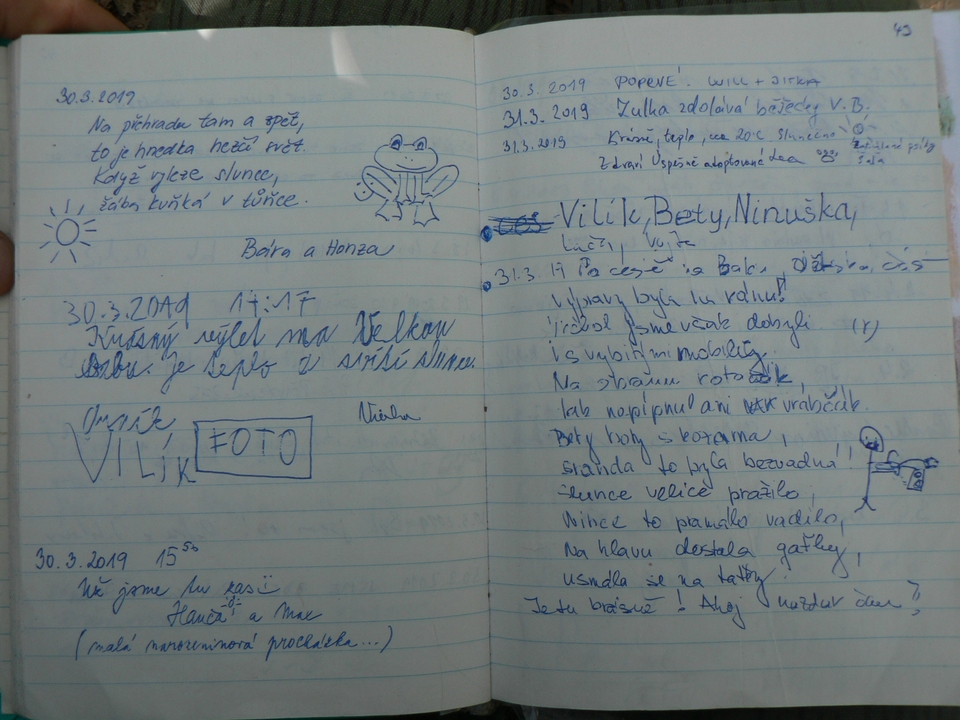 30.3.2019
Na přehradu tam a zpět,
to je hnedka hezčí svět.
Když vyleze slunce,
žába kuňká v tůňce.
Bára a Honza
30.3.2019 17:17
výlet na Velkou
Je teplo a svítí slunce.
VILÍK FOTO
30.3.2019 15 50
Už jsme tu zas
Hanča a Max
(malá narozeninová procházka...)
49
30.3.2019 POPRVÉ! WILL + JITKA
31.3.2019 Zulka zdolává běžecky V.B.
31.3.2019 Krásně, teplo, 20°C slunečno
Zdraví úspěšně adoptovaná
Vilík, Bety, Ninuška,
31.3. 19 Po cestě
výpravy byla na rdnu!
jsme však dobyli (r)
i s vybitými mobily.
Na stranu
tak nepípnul ani vrabčák.
Bety boty s kozama,
sranda to byla bezvadná!!
slunce velice pražilo,
Nince to pramálo vadilo,
Na hlavu dostala gaťky,
usmála se na taťky.
Je tu krásně! Ahoj